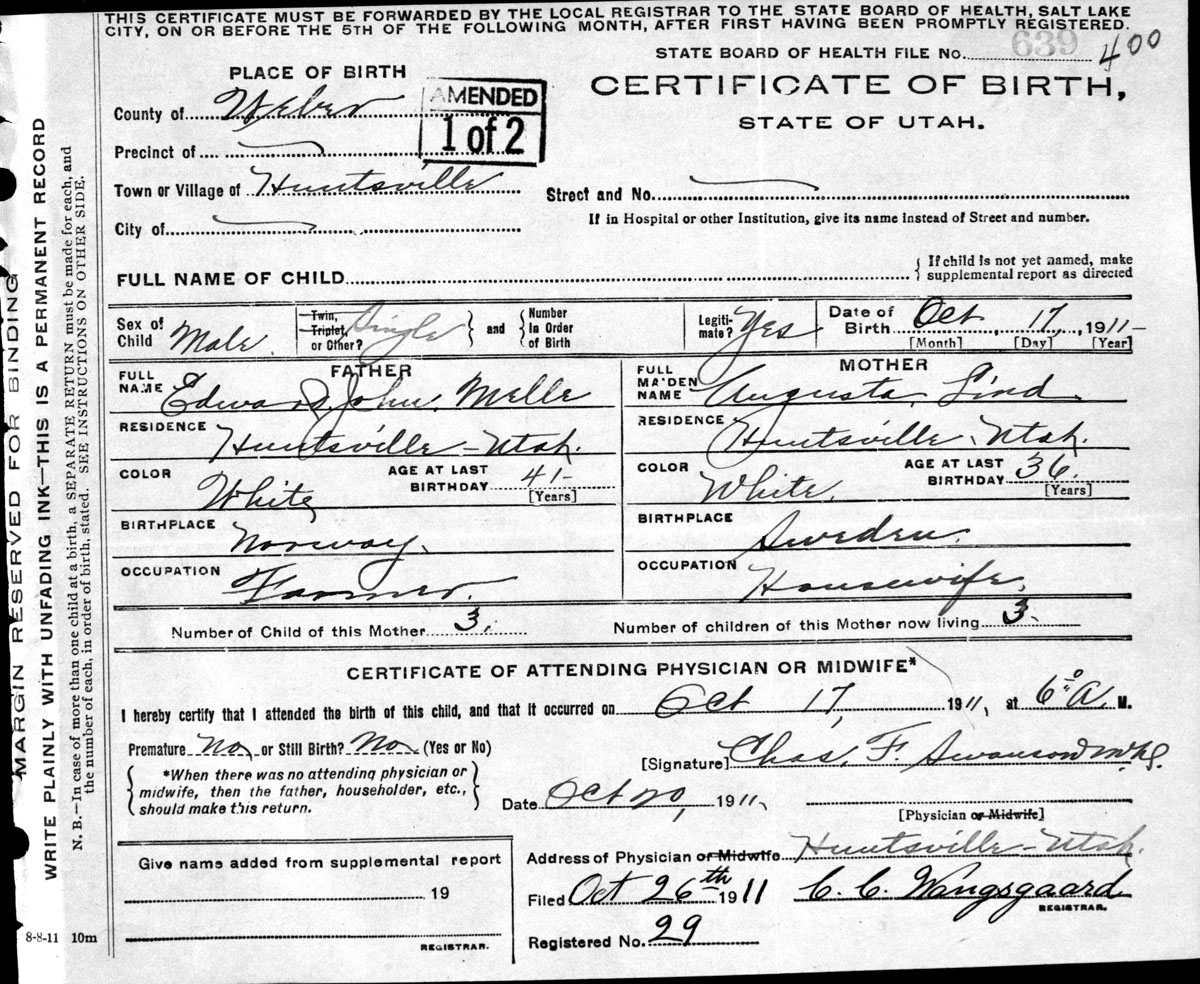 THIS CERTIFICATE MUST BE FORWARDED BY THE LOCAL REGISTRAR TO THE STATE BOARD OF HEALTH, SALT LAKE
CITY, ON OR BEFORE THE 5TH OF THE FOLLOWING MONTH, AFTER FIRST HAVING BEEN PROMPTLY REGISTERED.
STATE BOARD OF HEALTH FILE No. 639 400
PLACE OF BIRTH
CERTIFICATE OF BIRTH,
STATE OF UTAH.
AMENDED
1 of 2
County of Weber
Precinct of
Town or Village of Huntsville
Street and No.
If in Hospital or other Institution, give its name instead of Street and number.
City of
FULL NAME OF CHILD
If child is not yet named, make
supplemental report as directed
Sex of Child Male.
Twin, Triplet, or Other? Single
and Number In Order of Birth
Legiti-mate? Yes
Date of Birth Oct, 17, 1911
[Month] [Day] [Year]
FATHER
FULL NAME Edward John. Melle
RESIDENCE Huntsville - Utah.
COLOR White
AGE AT LAST BIRTHDAY 41
[Years]
BIRTHPLACE Norway.
OCCUPATION Farmer.
MOTHER
FULL MAIDEN NAME Augusta Lind
RESIDENCE Huntsville, Utah.
COLOR White.
AGE AT LAST BIRTHDAY 36.
[Years]
BIRTHPLACE Sweden.
OCCUPATION Housewife.
Number of Child of this Mother 3.
Number of children of this Mother now living 3.
CERTIFICATE OF ATTENDING PHYSICIAN OR MIDWIFE*
I hereby certify that I attended the birth of this child, and that it occurred on Oct 17, 1911, at 6 A. M.
Premature No or Still Birth? No (Yes or No)
[Signature] Chas. F. Swanson
*When there was no attending physician or
midwife, then the father, householder, etc.,
should make this return.
Date Oct 20, 1911,
[Physician or Midwife]
Give name added from supplemental report
19
REGISTRAR.
Address of Physician or Midwife Huntsville - Utah.
Filed Oct 26th 1911 C. C. Wangsgaard
REGISTRAR.
Registered No. 29
8-8-11 10m
MARGIN RESERVED FOR BINDING
WRITE PLAINLY WITH UNFADING INK—THIS IS A PERMANENT RECORD
N. B.—In case of more than one child at a birth, a SEPARATE RETURN must be made for each, and
the number of each, in order of birth, stated. SEE INSTRUCTIONS ON OTHER SIDE.